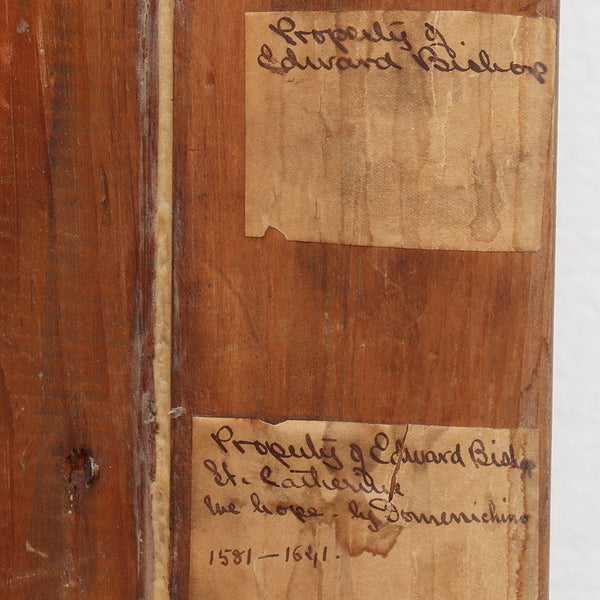 Property of
Edward Bishop
Property of Edward Bishop
St. Catherine
we hope. by Domenichino
1581 – 1641.